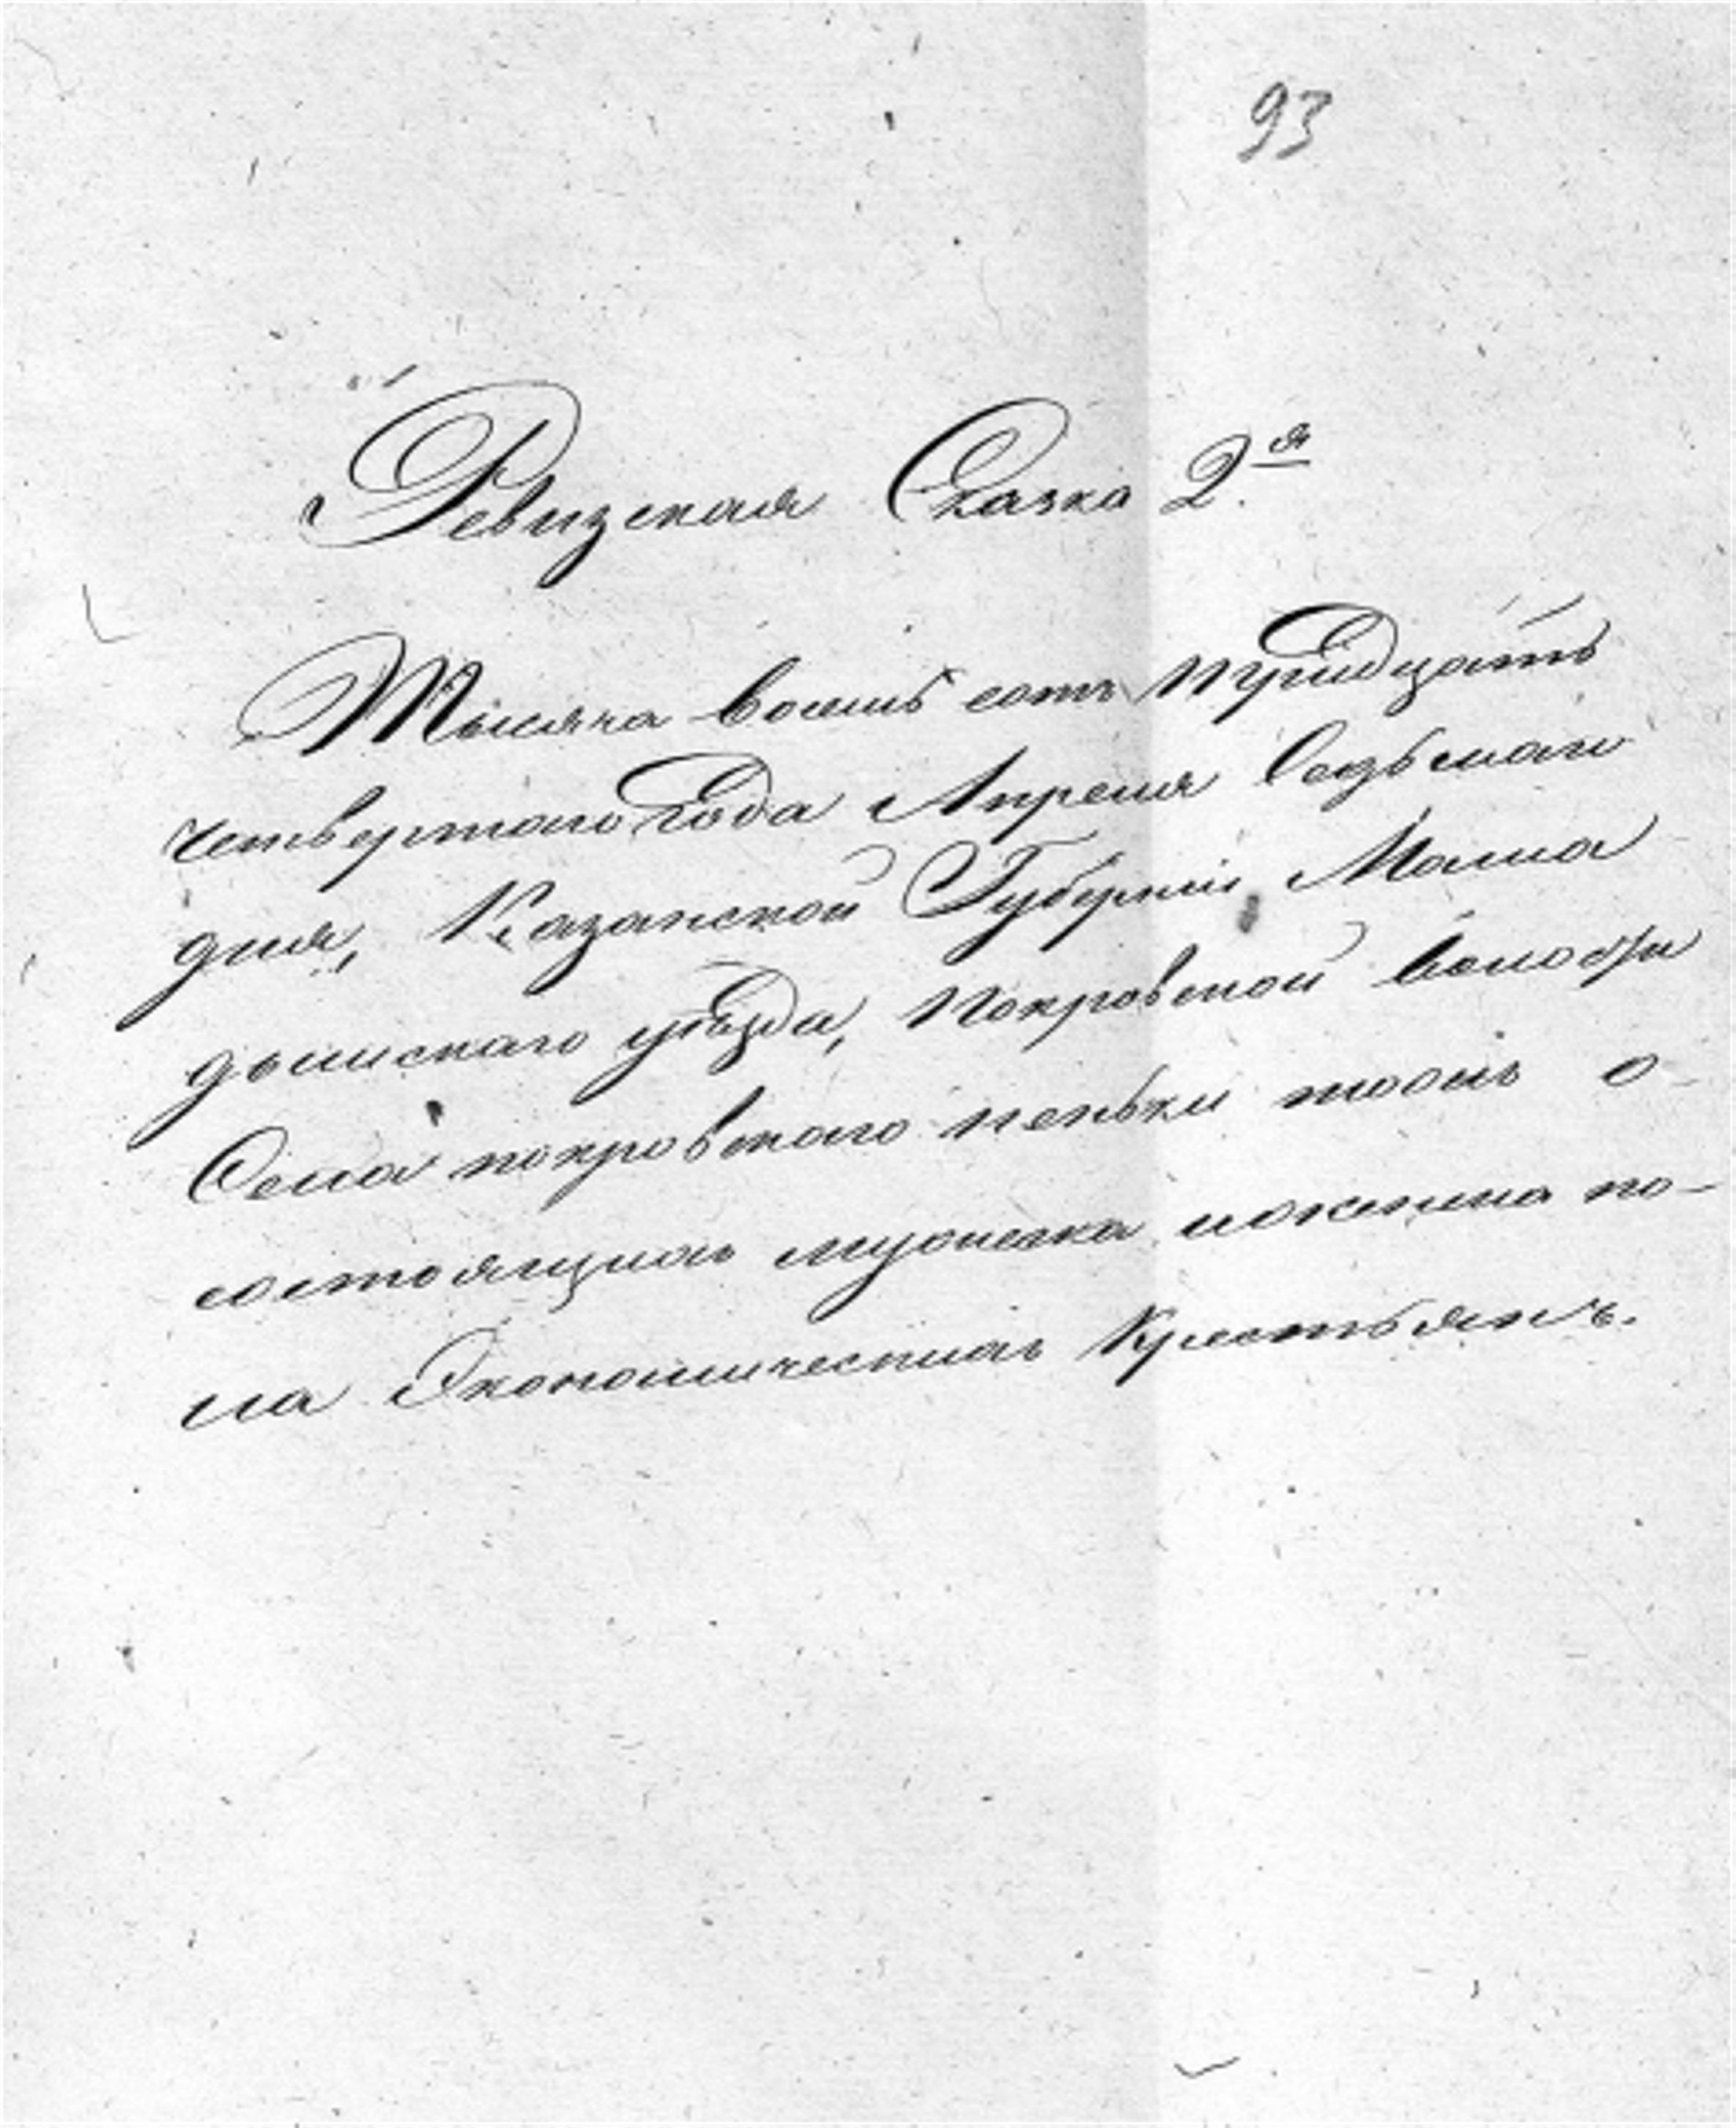 93
Ревизская Сказка 2.я
Тысяча восемь сотъ тридцать
четвертаго Года Апреля Седьмаго
дня, Казанской Губерніи Мама
дышскаго уѣзда, Покровской волости
Села покровскаго пеньки тожъ о
состоящихъ мужеска иженска по-
ла Экономическихъ Крестьянъ.